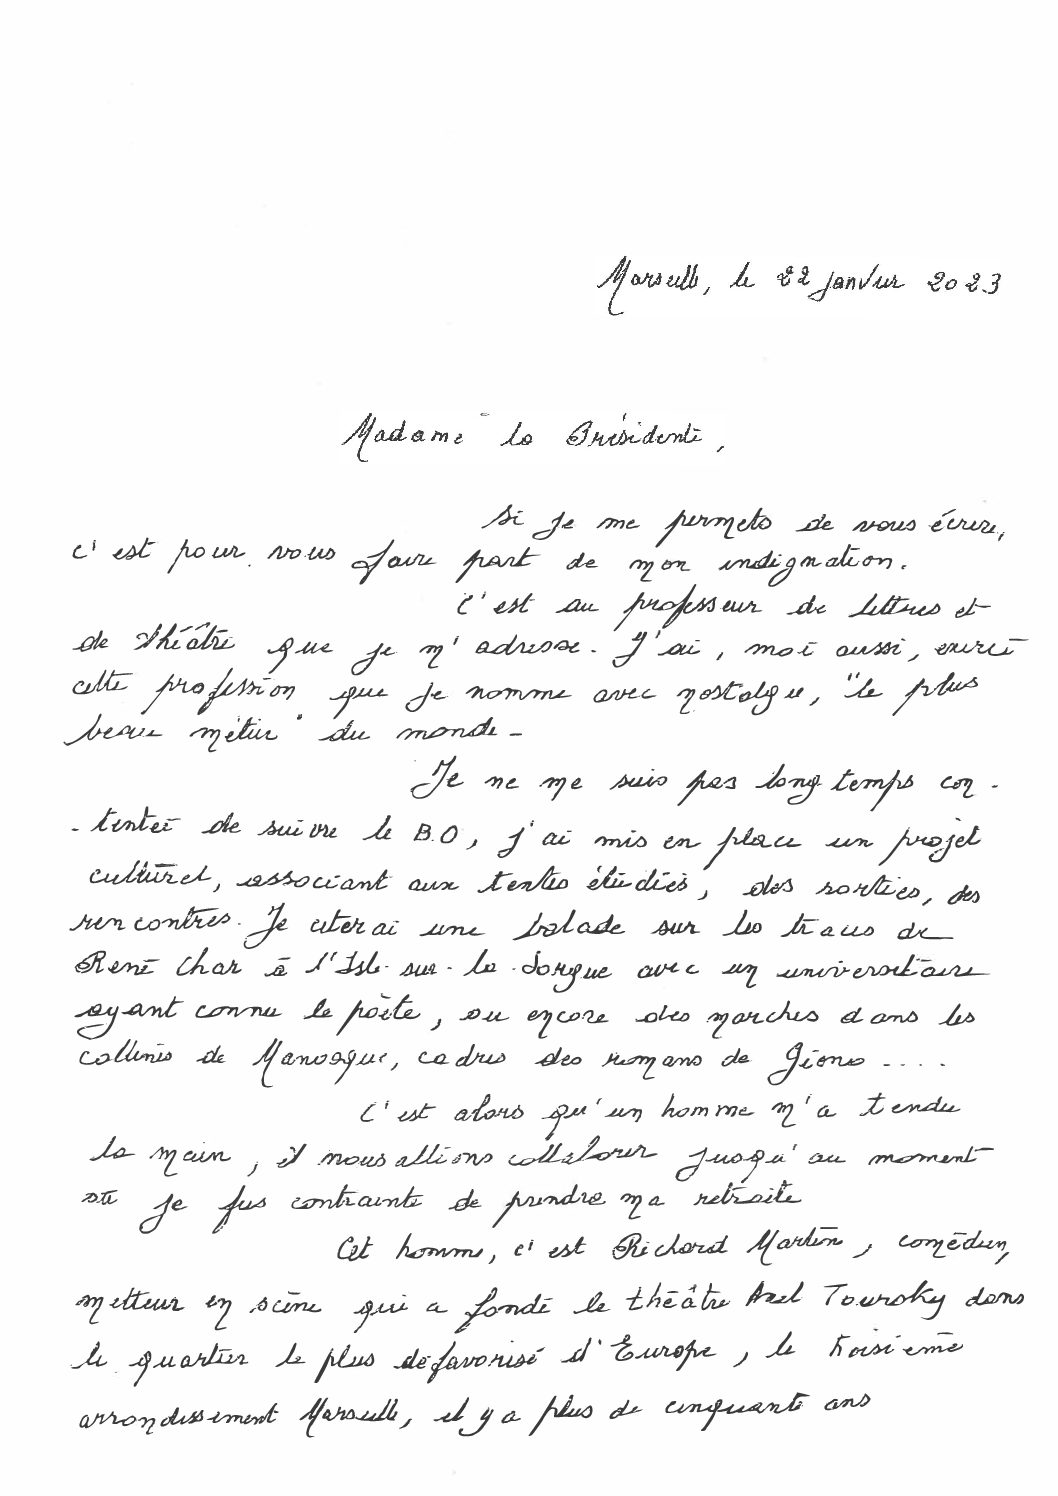 Marseille, le 22 janvier 2023
Madame la Présidente,
Si je me permets de vous écrire,
c'est pour vous faire part de mon indignation.
C'est au professeur de lettres et
de théâtre que je m'adresse. J'ai, moi aussi, exercé
cette profession que je nomme avec nostalgie, "le plus
beau métier" du monde.
Je ne me suis pas longtemps con-
-tentée de suivre le B.O, j'ai mis en place un projet
culturel, associant aux textes étudiés, des sorties, des
rencontres. Je citerai une balade sur les traces de
René Char à l'Isle-sur-la-Sorgue avec un universitaire
ayant connu le poète, ou encore des marches dans les
collines de Manosque, cadres des romans de Giono ....
C'est alors qu'un homme m'a tendu
la main, et nous allions collaborer jusqu'au moment
où je fus contrainte de prendre ma retraite
Cet homme, c'est Richard Martin, comédien,
metteur en scène qui a fondé le théâtre Axel Toursky dans
le quartier le plus défavorisé d'Europe, le troisième
arrondissement Marseille, il y a plus de cinquante ans